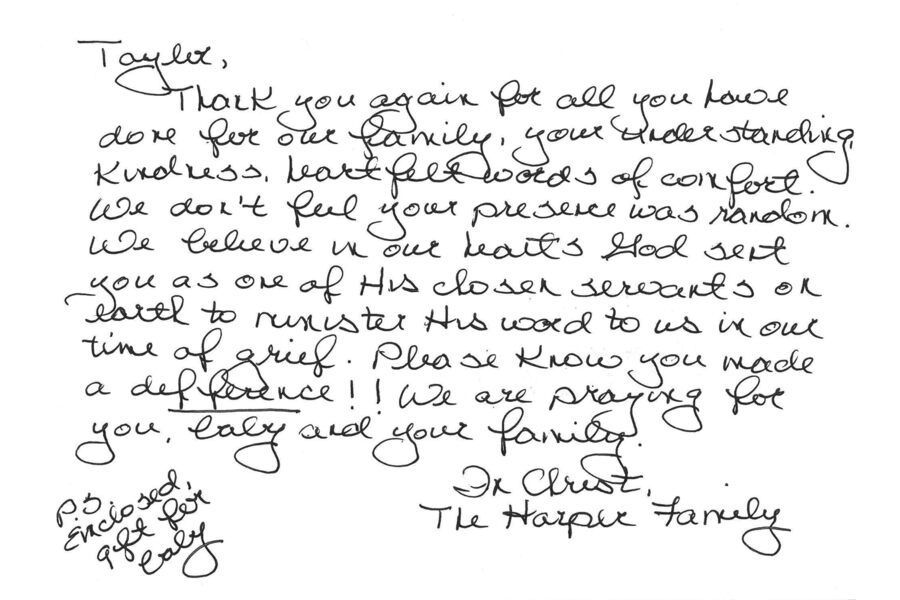 Taylor,
Thank you again for all you have
done for our family, your understanding,
kindness, heartfelt words of comfort.
We don't feel your presence was random.
We believe in our hearts God sent
you as one of His chosen servants on
earth to minister His word to us in our
time of grief. Please know you made
a defference!! We are praying for
you, baby and your family.
In Christ,
The Harper Family
P.S.
Enclosed,
gift for
baby